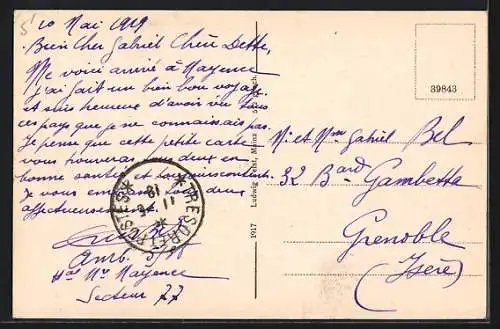 10 Mai 1919
Bien Cher Gabriel Chère Dette,
Me voici arrivé à Mayence
j'ai fait un bien bon voyage
et suis heureux d'avoir vu tous
ces pays que je ne connaissais pas.
Je pense que cette petite carte
vous trouvera tous deux en
bonne santé et toujours contents.
Je vous embrasse tous deux
affectueusement.
Amb. 5/
Mayence
Secteur 77
TRESOR ET POSTES
11
1917 Ludwig Feist, Mainz
39843
M. et Mme Gabriel Bel
32 Bard Gambetta
Grenoble
(Isère)